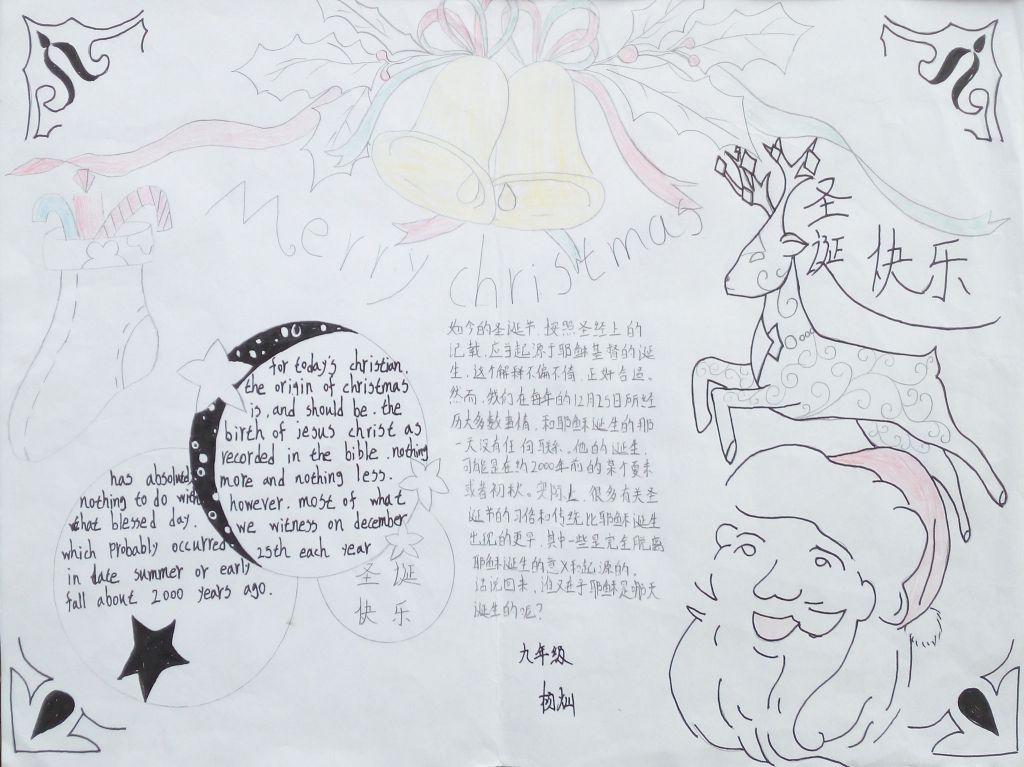 Merry christmas
圣
诞 快 乐
for today's christian.
the origin of christmas
is. and should be. the
birth of jesus christ as
recorded in the bible. nothing
more and nothing less.
however. most of what
we witness on december
25th each year
has absolutely
nothing to do with
that blessed day.
which probably occurred
in late summer or early
fall about 2000 years ago.
圣 诞
快 乐
如今的圣诞节，按照圣经上的
记载，应当起源于耶稣基督的诞
生，这个解释不偏不倚，正好合适。
然而，我们在每年的12月25日所经
历大多数事情，和耶稣诞生的那
一天没有任何联系。他的诞生，
可能是在约2000年前的某个夏末
或者初秋。实际上，很多有关圣
诞节的习俗和传统，比耶稣诞生
出现的更早，其中一些是完全脱离
耶稣诞生的意义和起源的。
话说回来，谁又在乎耶稣是哪天
诞生的呢？
九年级
杨灿